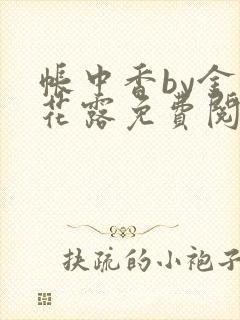 帐中香by金
花露免費閱
扶疏的小袍子